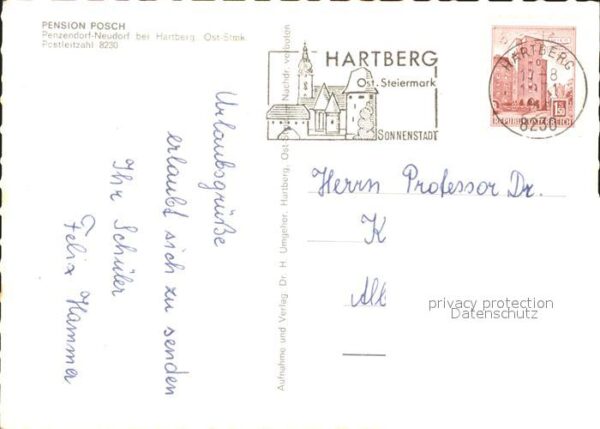 PENSION POSCH
Penzendorf-Neudorf bei Hartberg, Ost-Stmk.
Postleitzahl 8230
HARTBERG
Ost-Steiermark
SONNENSTADT
HARTBERG
8230
Urlaubsgrüße
erlaubt sich zu senden
Ihr Schüler
Felix Hammer
Aufnahme und Verlag: Dr. H. Umgeher, Hartberg, Ost-Stmk. Nachdr. verboten
Herrn Professor Dr.
K
All
privacy protection
Datenschutz